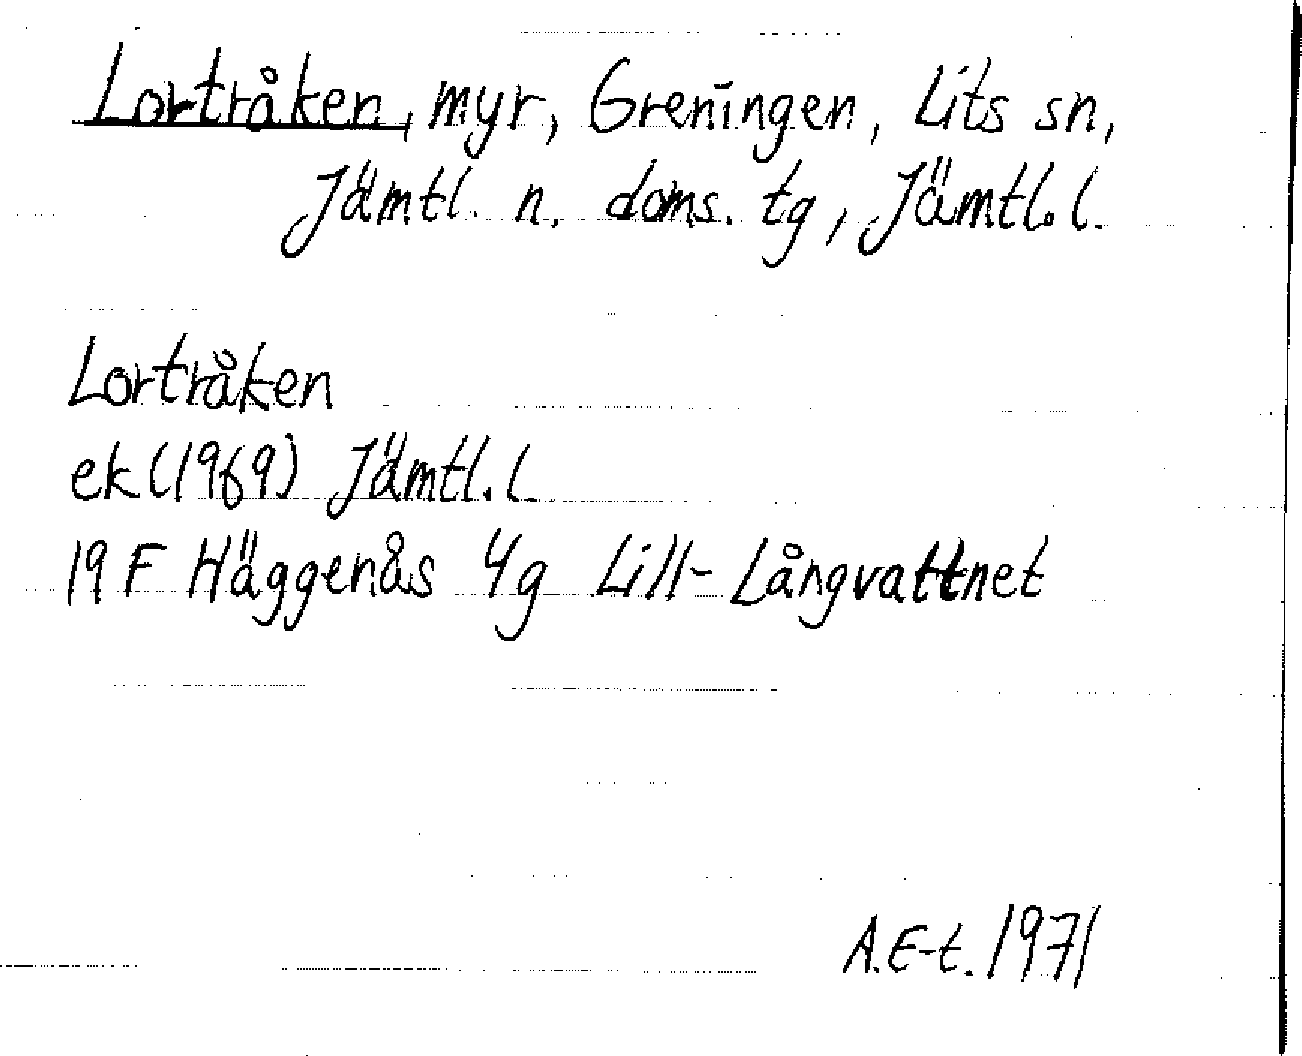 Lortråken, myr, Greningen, Lits sn,
Jämtl. n. doms. tg, Jämtl. l.
Lortråken
ek (1969) Jämtl. l.
19 F Häggenås 4g Lill-Långvattnet
A.E-t. 1971